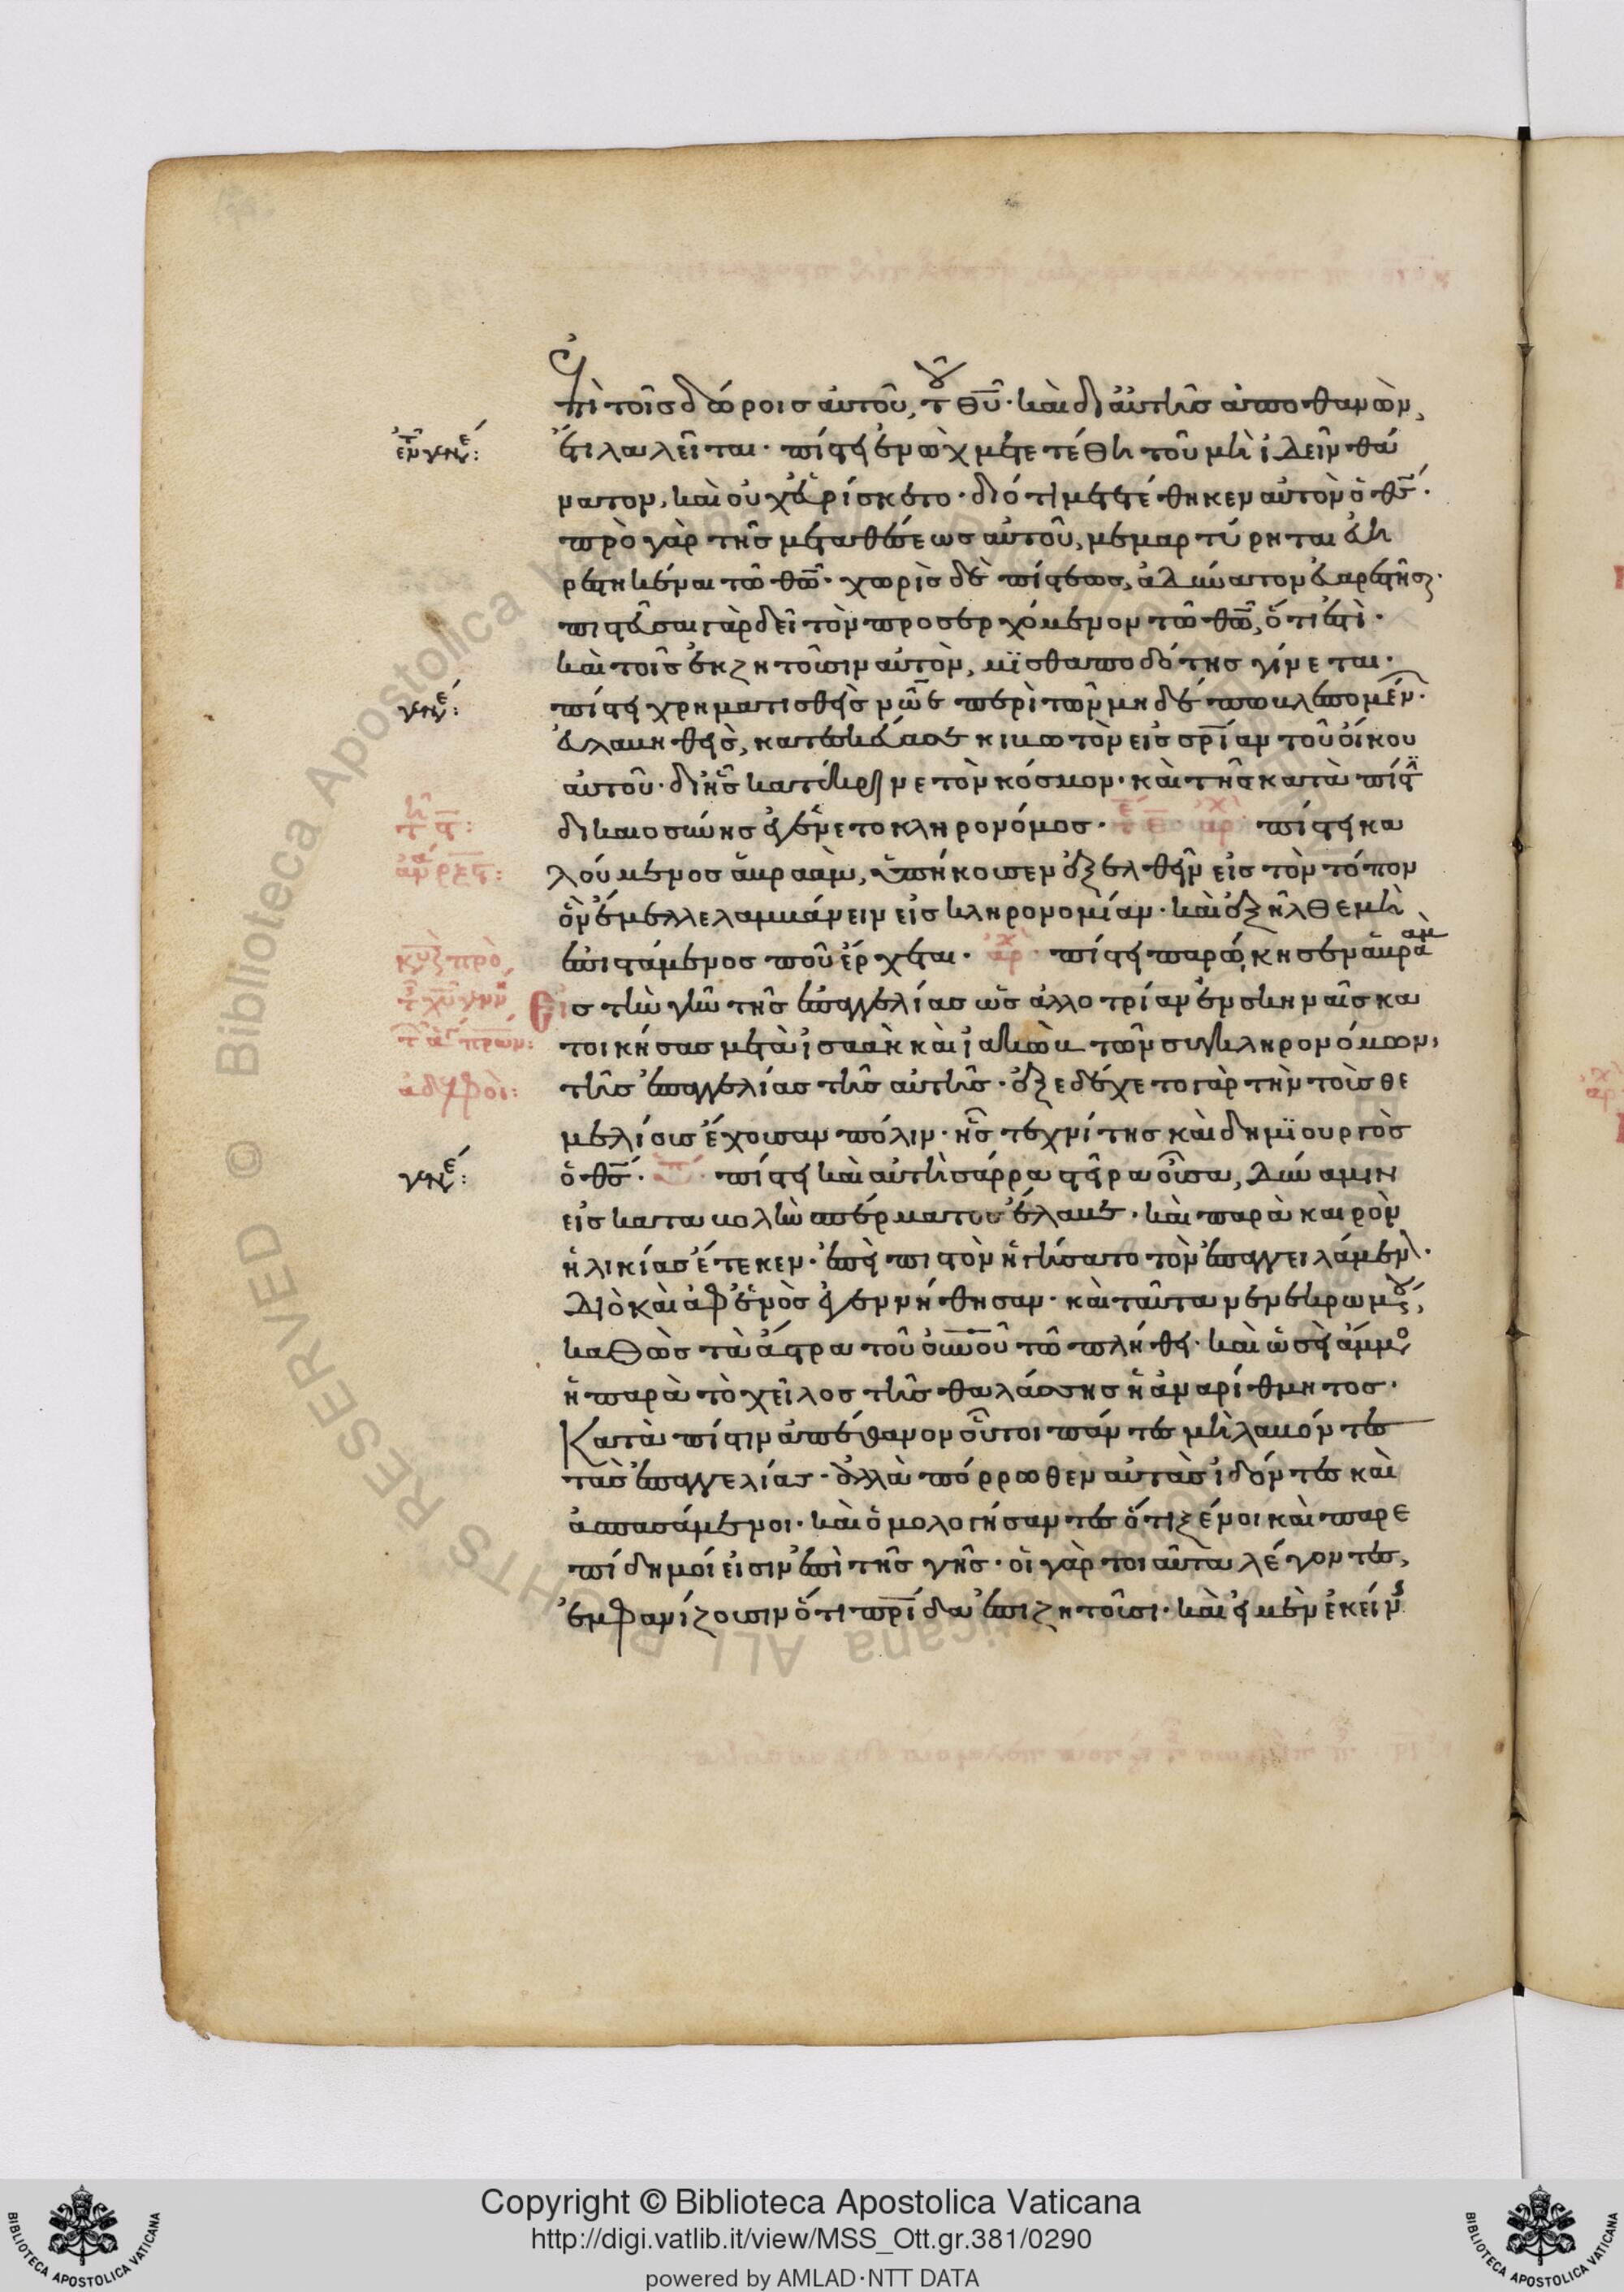 Ἐπὶ τοῖς δώροις αὐτοῦ, τοῦ θῦ· καὶ δι᾽ αὐτῆς ἀποθανὼν,
ἔτι λαλεῖται· πίστει ἐνὼχ μετετέθη τοῦ μὴ ἰδεῖν θά
νατον, καὶ οὐχ εὑρίσκετο· διότι μετέθηκεν αὐτὸν ὁ θς·
πρὸ γὰρ τῆς μεταθέσεως αὐτοῦ, μεμαρτύρηται εὐη
ρεστηκέναι τῶ θῶ· χωρὶς δὲ πίστεως, ἀδύνατον εὐαρεστῆσαι·
πιστεῦσαι γὰρ δεῖ τὸν προσερχόμενον τῶ θῶ, ὅτι ἐστὶ·
καὶ τοῖς ἐκζητοῦσιν αὐτὸν, μϊσθαποδότης γίνεται·
πίστει χρηματισθεὶς νῶε περὶ τῶν μηδέπω βλεπομένων·
εὐλαβηθεὶς, κατεσκεύασε κιβωτὸν εἰς σρίαν τοῦ οἴκου
αὐτοῦ· δι᾽ ἧς κατέκρινε τὸν κόσμον· καὶ τῆς κατὰ πίστιν
δικαιοσύνης ἐγένετο κληρονόμος· πίστει κα
λούμενος ἁβραὰμ, ὑπήκουσεν ἐξελθεῖν εἰς τὸν τόπον
ὃν ἔμελλε λαμβάνειν εἰς κληρονομίαν· καὶ ἐξῆλθε μὴ
ἐπιστάμενος ποῦ ἔρχεται· ἀρχ· πίστει παρώκησεν ἁβραὰμ
Εἰς τὴν γῆν τῆς ἐπαγγελίας ὡς ἀλλοτρίαν ἐν σκηναῖς κα
τοικήσας μετὰ ἰσαὰκ καὶ ἰακὼβ τῶν συγκληρονόμων,
τῆς ἐπαγγελίας τῆς αὐτῆς· ἐξεδέχετο γὰρ τὴν τοὺς θε
μελίους ἔχουσαν πόλιν· ἧς τεχνίτης καὶ δημϊουργὸς
ὁ θς· πίστει καὶ αὐτὴ σάρρα στεῖρα οὖσα, δύναμιν
εἰς καταβολὴν σπέρματος ἔλαβε· καὶ παρὰ καιρὸν
ἡλικίας ἔτεκεν· ἐπεὶ πιστὸν ἡγήσατο τὸν ἐπαγγειλάμενον·
Διὸ καὶ ἀφ᾽ ἑνὸς ἐγεννήθησαν· καὶ ταῦτα νενεκρωμένου,
καθὼς τὰ ἄστρα τοῦ οὐνοῦ τῶ πλήθει· καὶ ὡσεὶ ἄμμος
ἡ παρὰ τὸ χεῖλος τῆς θαλάσσης ἡ ἀναρίθμητος·
Κατὰ πίστιν ἀπέθανον οὗτοι πάντες μὴ λαβόντες
τὰς ἐπαγγελίας· ἀλλὰ πόρρωθεν αὐτὰς ἰδόντες καὶ
ἀσπασάμενοι· καὶ ὁμολογήσαντες ὅτι ξένοι καὶ παρε
πίδημοί εἰσιν ἐπὶ τῆς γῆς· οἱ γὰρ τοιαῦτα λέγοντες,
ἐμφανίζουσιν ὅτι πρίδα ἐπιζητοῦσι· καὶ εἰ μὲν ἐκείνης
ἀδελφοὶ:
Copyright © Biblioteca Apostolica Vaticana
http://digi.vatlib.it/view/MSS_Ott.gr.381/0290
powered by AMLAD·NTT DATA
BIBLIOTECA APOSTOLICA VATICANA
BIBLIOTECA APOSTOLICA VATICANA